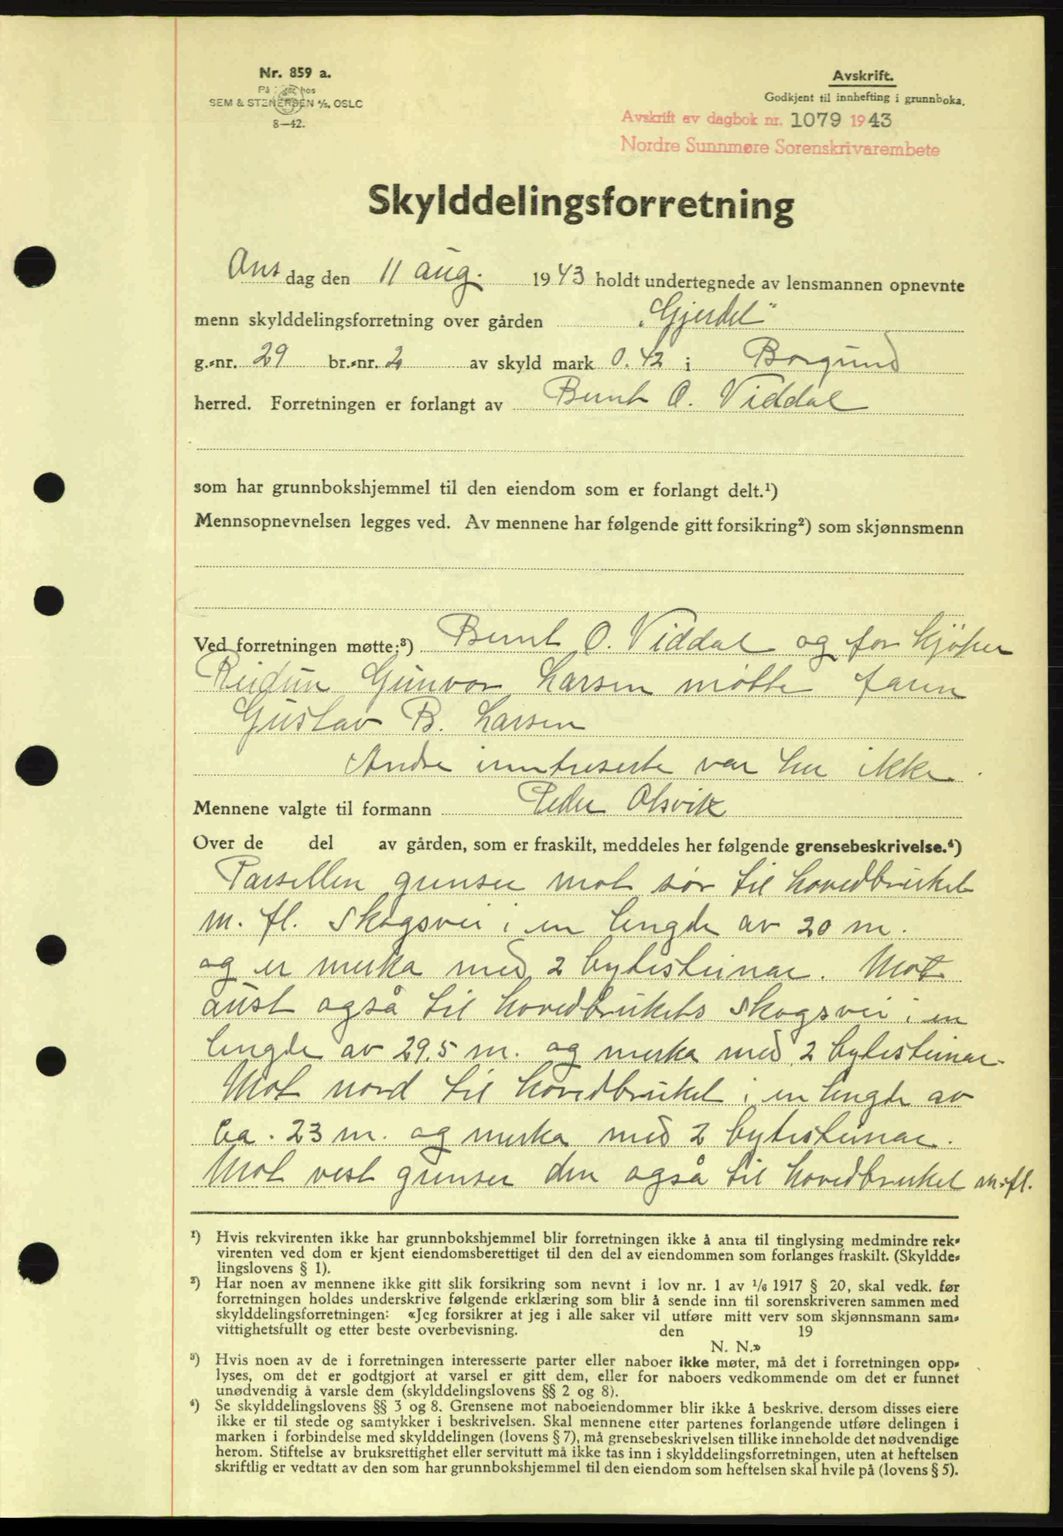 Nr. 859 a.
SEM & STENERSEN A/S, OSLO
8-42.
Avskrift.
Godkjent til innhefting i grunnboka.
Avskrift av dagbok nr. 1079 1943
Nordre Sunnmøre Sorenskrivarembete
Skylddelingsforretning
Onsdag den 11 aug. 1943 holdt undertegnede av lensmannen opnevnte
menn skylddelingsforretning over gården "Gjerdet"
g.-nr. 29 br.-nr. 2 av skyld mark 0.42 i Borgund
herred. Forretningen er forlangt av Bernt O. Viddal
som har grunnbokshjemmel til den eiendom som er forlangt delt.¹)
Mennsopnevnelsen legges ved. Av mennene har følgende gitt forsikring²) som skjønnsmenn
Ved forretningen møtte:³) Bernt O. Viddal og for kjøper
Reidun Gunvor Larsen møtte faren
Gustav B. Larsen
Andre inntreserte var her ikke.
Mennene valgte til formann Peder Olsvik
Over de del av gården, som er fraskilt, meddeles her følgende grensebeskrivelse.⁴)
Parsellen grenser mot sør til hovedbruket
m. fl. skogsvei i en lengde av 20 m.
og er merka med 2 bytesteinar. Mot
aust også til hovedbrukets skogsvei i en
lengde av 29.5 m. og merka med 2 bytesteinar.
Mot nord til hovedbruket i en lengde av
ca. 23 m. og merka med 2 bytesteinar.
Mot vest grenser den også til hovedbruket m.fl.
¹) Hvis rekvirenten ikke har grunnbokshjemmel blir forretningen ikke å anta til tinglysing medmindre rek-
virenten ved dom er kjent eiendomsberettiget til den del av eiendommen som forlanges fraskilt. (Skyldde-
lingslovens § 1).
²) Har noen av mennene ikke gitt slik forsikring som nevnt i lov nr. 1 av 1/6 1917 § 20, skal vedk. før
forretningen holdes underskrive følgende erklæring som blir å sende inn til sorenskriveren sammen med
skylddelingsforretningen: «Jeg forsikrer at jeg i alle saker vil utføre mitt verv som skjønnsmann sam-
vittighetsfullt og etter beste overbevisning. den 19
N. N.»
³) Hvis noen av de i forretningen interesserte parter eller naboer ikke møter, må det i forretningen opp-
lyses, om det er godtgjort at varsel er gitt dem, eller for naboers vedkommende om det er funnet
unødvendig å varsle dem (skylddelingslovens §§ 2 og 8).
⁴) Se skylddelingslovens §§ 3 og 8. Grensene mot naboeiendommer blir ikke å beskrive, dersom disses eiere
ikke er til stede og samtykker i beskrivelsen. Skal mennene etter partenes forlangende utføre delingen i
marken i forbindelse med skylddelingen (lovens § 7), må grensebeskrivelsen tillike inneholde det nødvendige
herom. Stiftelse av bruksrettighet eller servitutt må ikke tas inn i skylddelingsforretningen, uten at heftelsen
skriftlig er vedtatt av den som har grunnbokshjemmel til den eiendom som heftelsen skal hvile på (lovens § 5).